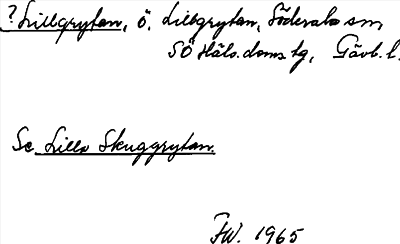 ? Lillgrytan, ö. Lillgrytan, Söderala sn
SÖ Häls. doms. tg, Gävb. l.
Se Lilla Skuggrytan.
FW. 1965